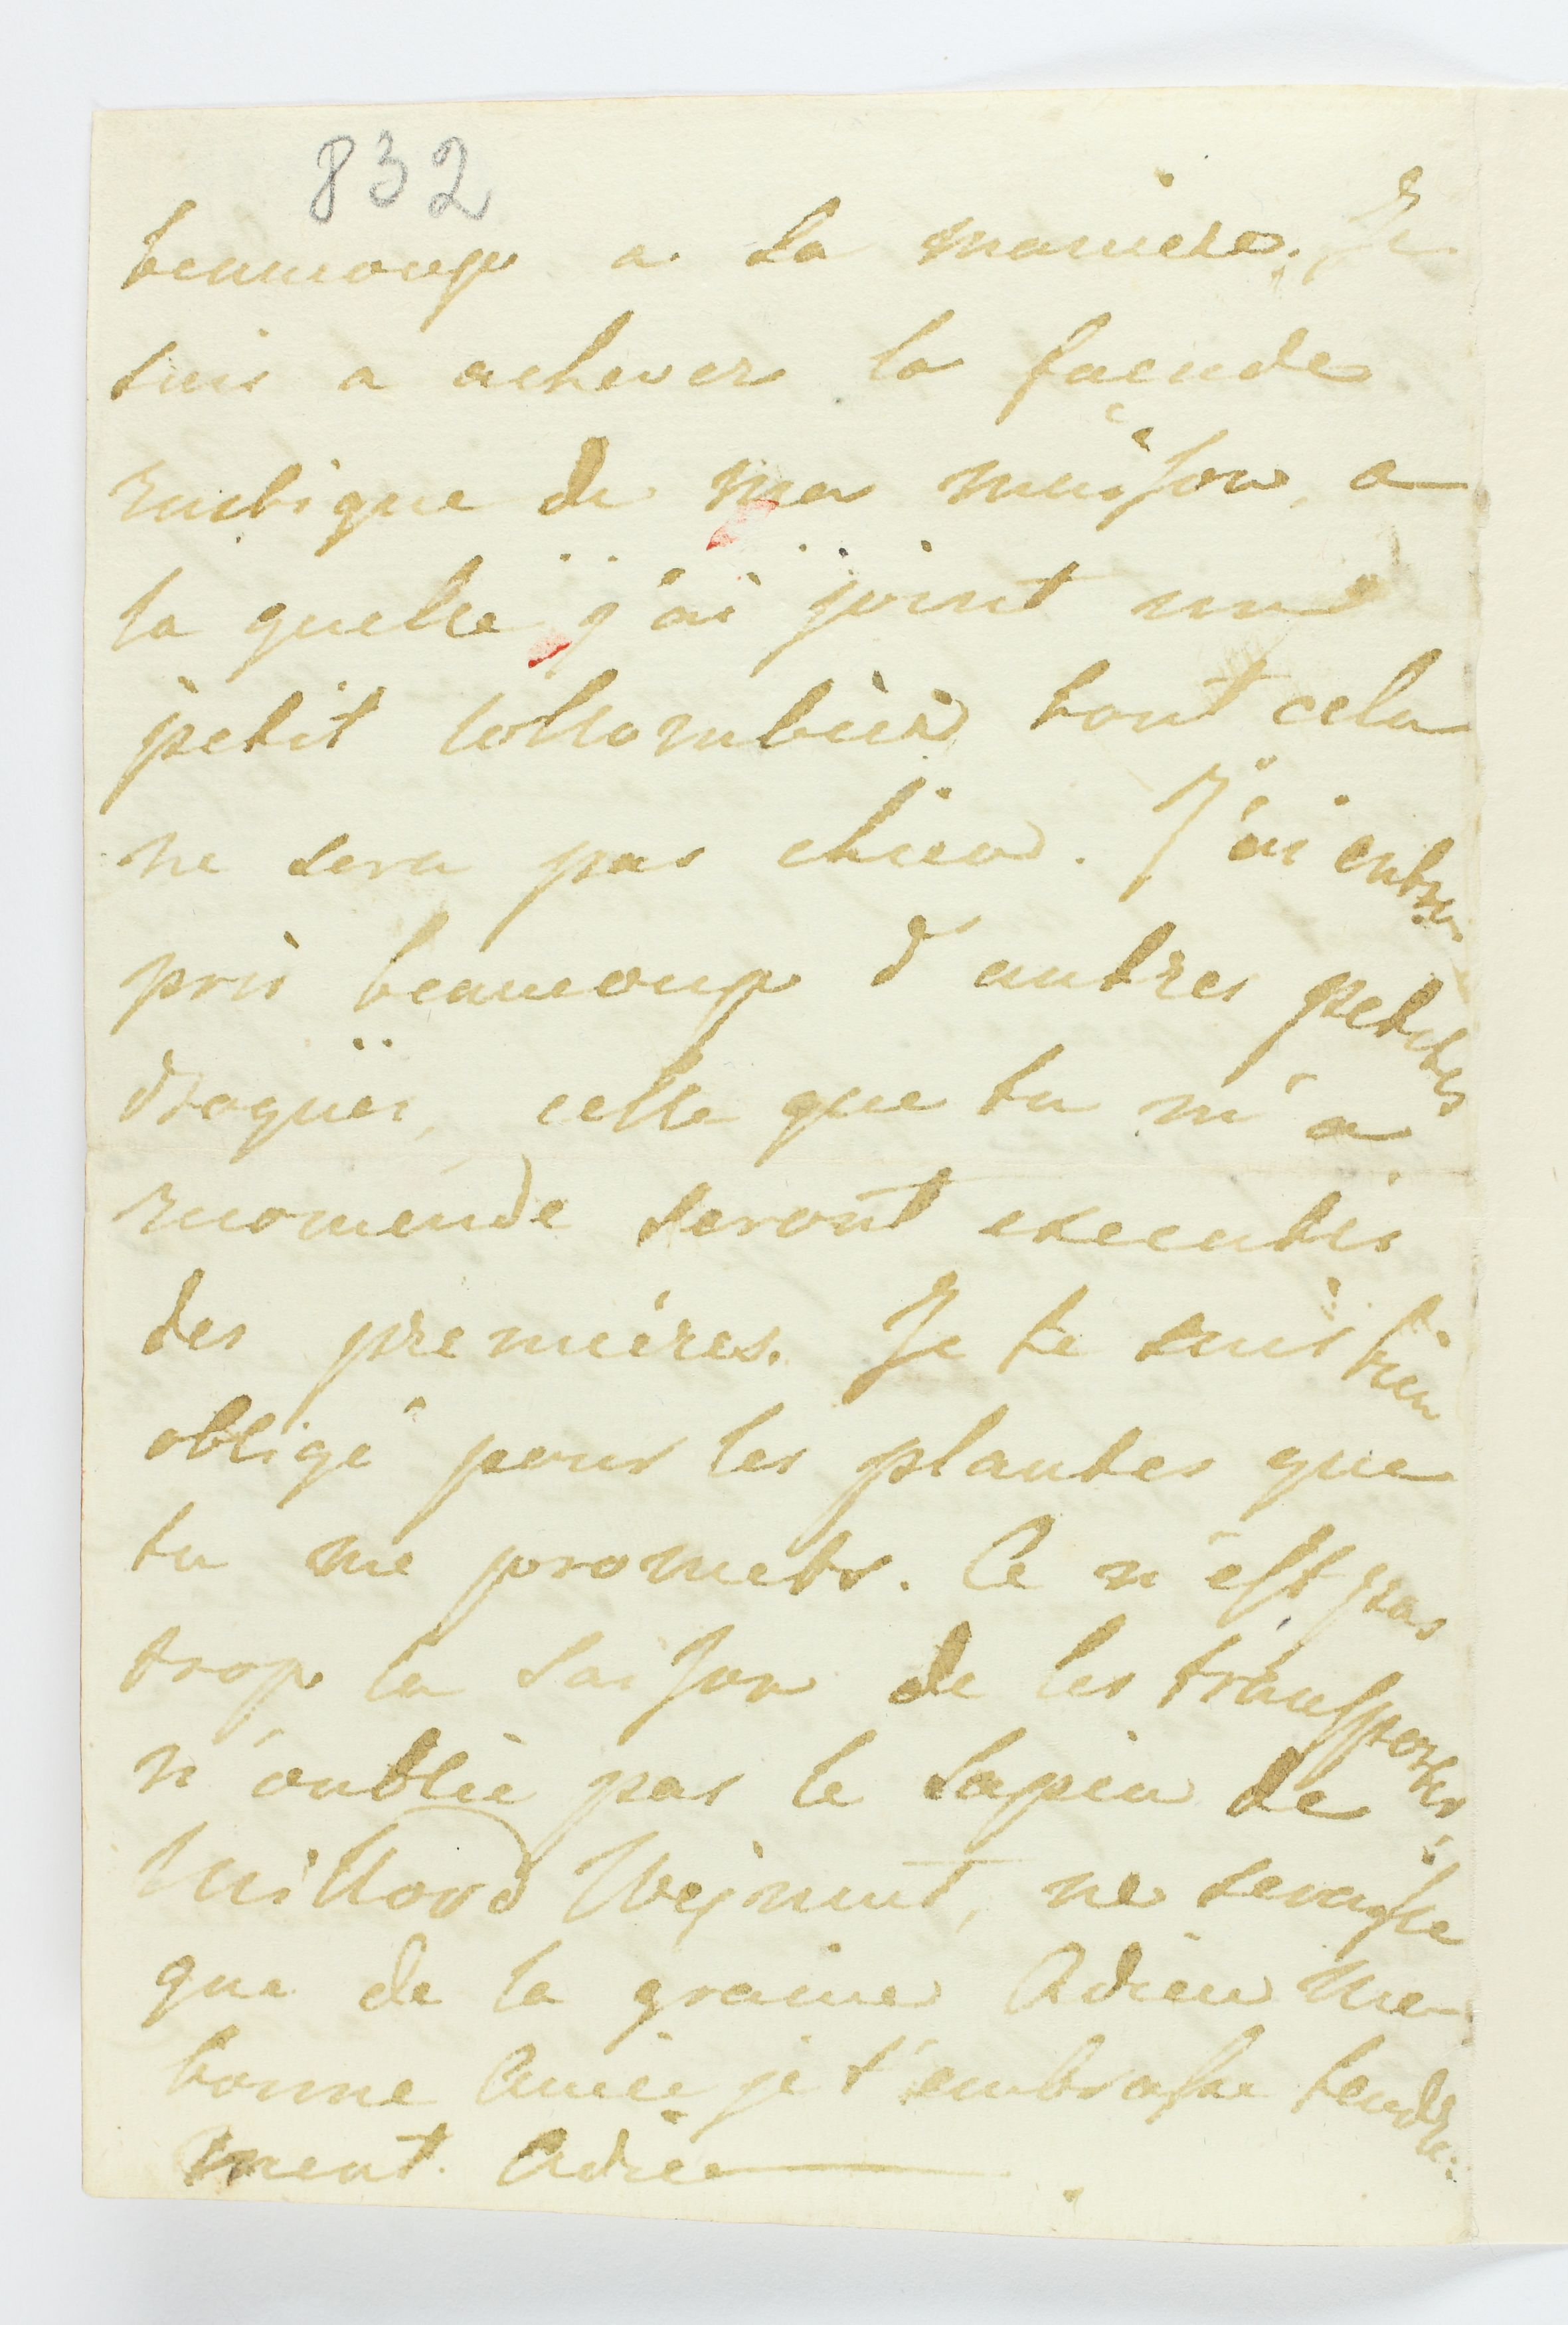 832
beaucoup a sa maniere. Je
suis a achever la facude
rustique de ma maison, a
la quelle j'ai joint un
petit collombier tout cela
ne sera pas chien. J'ai entre
pris beaucoup d'autres petites
drogues, celle que tu m'a
recomende seront executés
des premieres. Je te suis bien
obligé pour les plantes que
tu me promets. Ce n'est pas
trop la saison de les transporter
n'oublie pas le sapin de
Millord Wejmut, ne serasse
que de la graine Adieu Ma
bonne Amie je t'embrasse tendre-
ment. Adieu